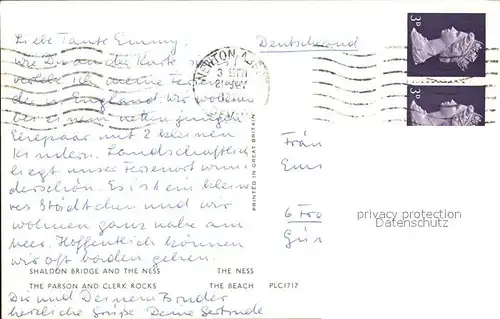 Liebe Tante Emmy,
wie Du an der Karte siehst
verlebe ich meine Ferien
in England. Wir wohnen
bei einem netten jungen
Ehepaar mit 2 kleinen
Kindern. Landschaftlich
liegt unser Ferienort wun-
derschön. Es ist ein kleine-
res Städtchen und wir
wohnen ganz nahe am
Meer. Hoffentlich können
wir oft baden gehen.
SHALDON BRIDGE AND THE NESS THE NESS
THE PARSON AND CLERK ROCKS THE BEACH PLC1717
Dir und Deinem Bruder
herzliche Grüße Deine Gertrude
PRINTED IN GREAT BRITAIN
NEWTON ABBOT
3
Deutschland
3D
3D
Fräu
Emm
6 Fra
Gus
privacy protection
Datenschutz